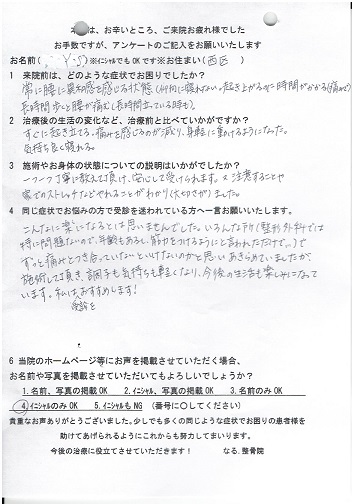 は、お辛いところ、ご来院お疲れ様でした
お手数ですが、アンケートのご記入をお願いいたします
お名前( Y・ )※イニシャルでもOKです※お住まい(西区)
1 来院前は、どのような症状でお困りでしたか?
常に腰に異和感を感じる状態(仰向に寝れない。起き上がるのに時間がかかる(痛みで)
長時間歩くと腰が痛む(長時間立っている時も)
2 治療後の生活の変化など、治療前と比べていかがですか?
すぐに起き立てる。痛みを感じるのが減り、身軽に動けるようになった。
気持ち良く寝れる。
3 施術やお身体の状態についての説明はいかがでしたか?
一つ一つ丁寧に教えて頂け、安心して受けられます。又注意することや
家でのストレッチなどやれることがわかり(大切さが)ました。
4 同じ症状でお悩みの方で受診を迷われている方へ一言お願いします。
こんなに楽になるとは思いませんでした。いろんな所(整形外科では
特に問題ないので、年齢もあるし、筋力をつけるようにと言われただけで…)で
ずっと痛みとつき合っていかないといけないのかと思いあきらめていましたが、
施術して頂き、調子も気持ちも軽くなり、今後の生活も楽しみになって
います。私は受診をおすすめします!
6 当院のホームページ等にお声を掲載させていただく場合、
お名前や写真を掲載させていただいてもよろしいでしょうか?
1.名前、写真の掲載OK 2.イニシャル、写真の掲載OK 3.名前のみOK
4.イニシャルのみOK 5.イニシャルもNG (番号に○してください)
貴重なお声ありがとうございました。少しでも多くの同じような症状でお困りの患者様を
助けてあげられるようにこれからも努力してまいります。
今後の治療に役立てさせていただきます! なる.整骨院